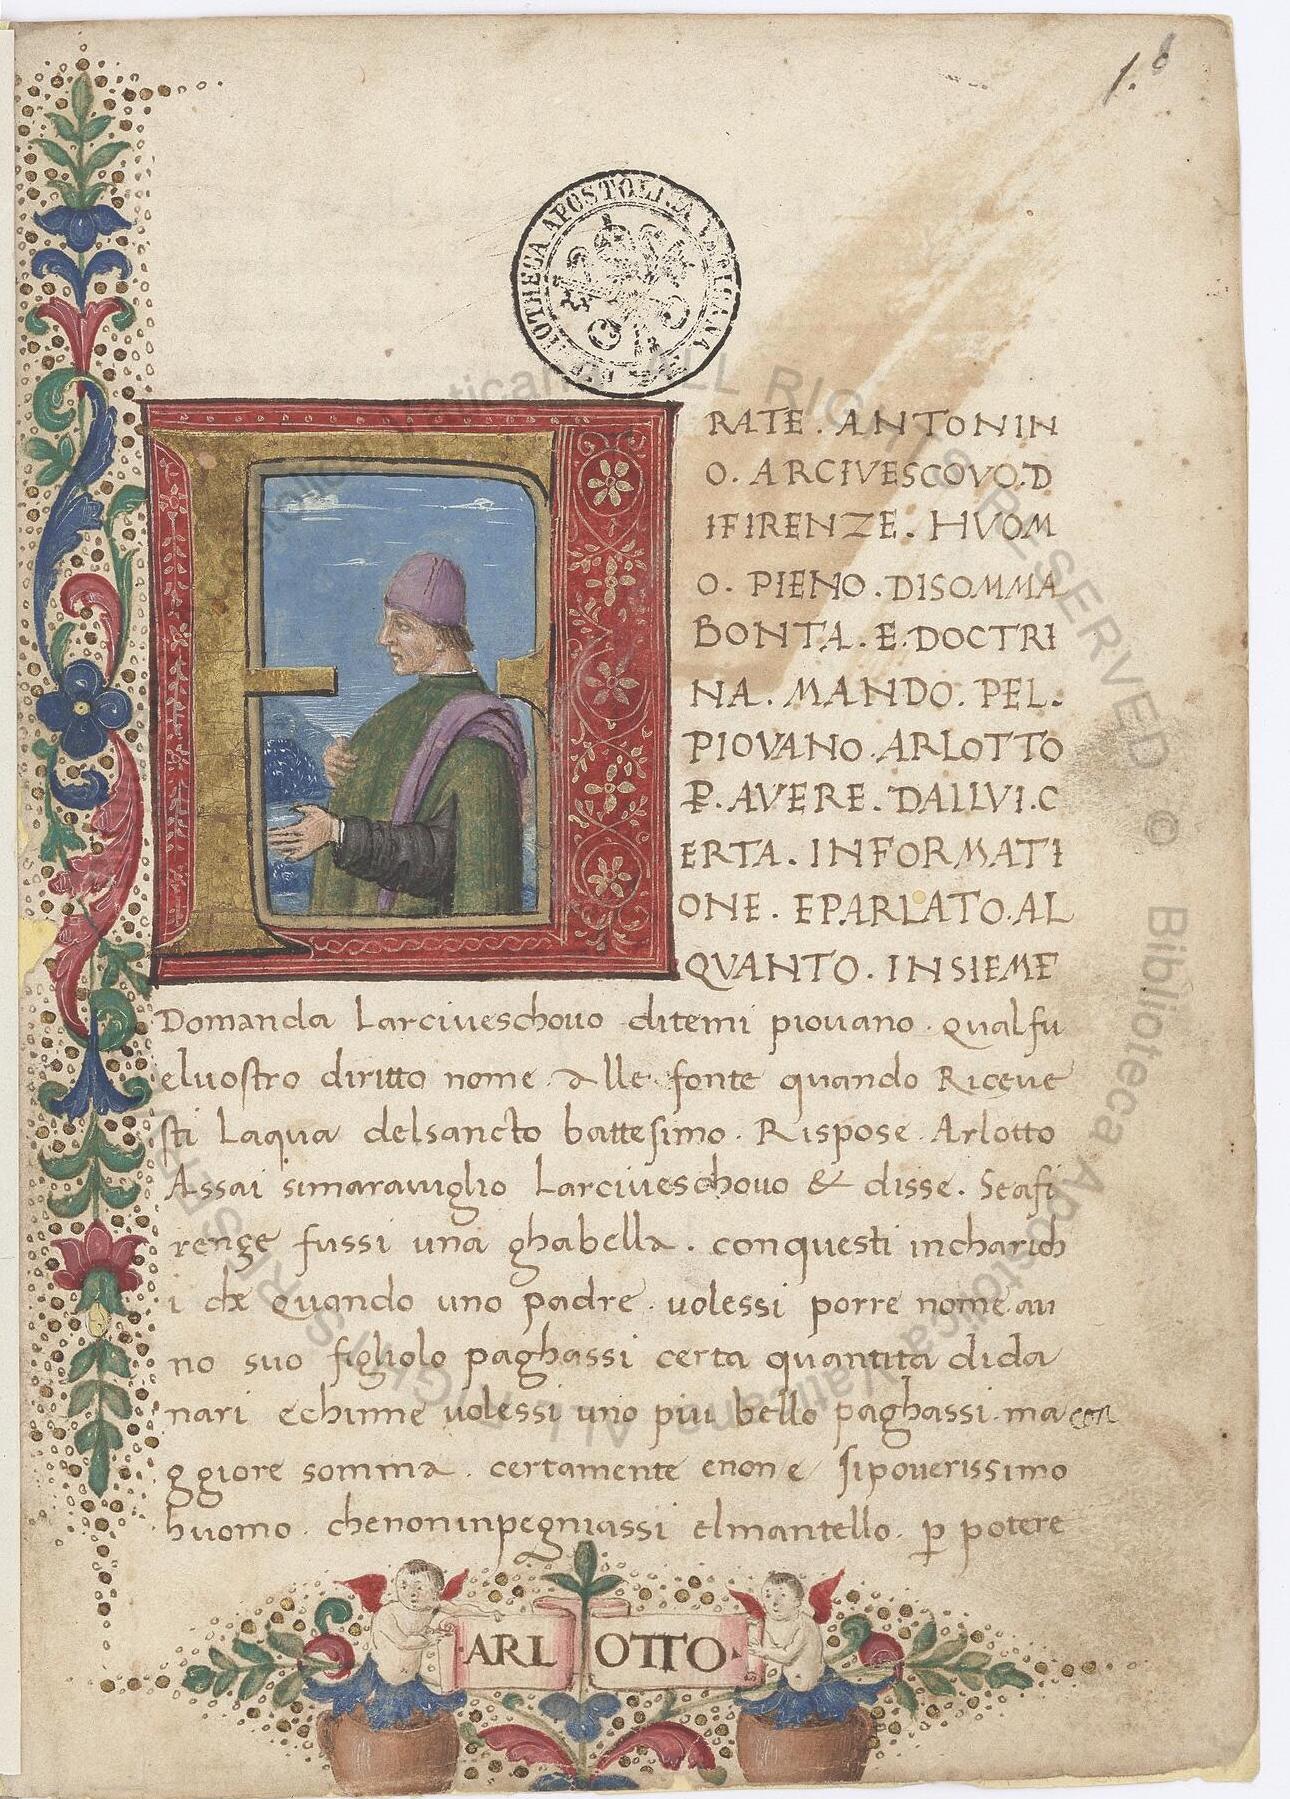 1. 8
BIBLIOTHECA APOSTOLICA VATICANA
F
RATE . ANTONIN
O . ARCIVESCOVO . D
IFIRENZE . HVOM
O . PIENO . DISOMMA
BONTA . E . DOCTRI
NA . MANDO . PEL .
PIOVANO . ARLOTTO
P̱ . AVERE . DALLVI . C
ERTA . INFORMATI
ONE . EPARLATO . AL
QVANTO . INSIEME
Domanda Larciueschouo ditemi piouano . qualfu
eluostro diritto nome . alle fonte quando Riceue
sti Laqua delsancto battesimo . Rispose . Arlotto
Assai simarauiglio Larciueschouo & disse . Seafi
renze fussi una ghabella . conquesti incharich
i che Quando uno padre . uolessi porre nome . au
no suo figliolo paghassi certa quantita dida
nari echinne uolessi uno piu bello paghassi . ma con
ggiore somma . certamente enone sipouerissimo
huomo . chenoninpegniassi elmantello . ꝑ potere
ARLOTTO
© Biblioteca Apostolica Vaticana ALL RIGHTS RESERVED